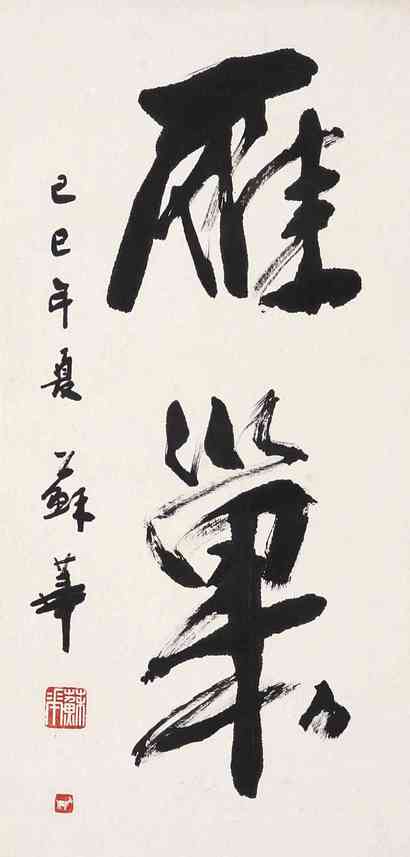 雁巢
己巳年夏 蘇華
蘇華